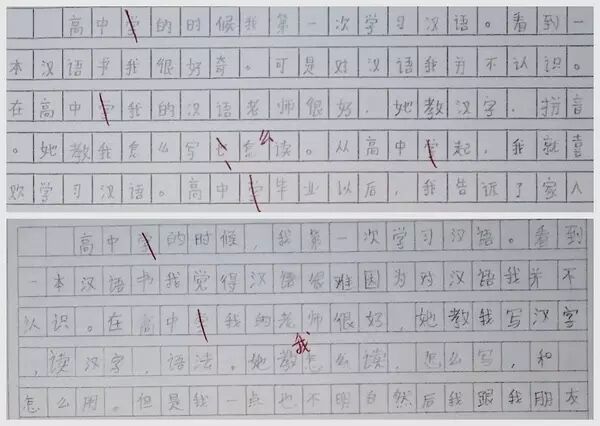 高中学的时候我第一次学习汉语。看到一
本汉语书我很好奇。可是对汉语我并不认识。
在高中学我的汉语老师很好，她教汉字，拼音
。她教我怎么写 怎么读。从高中学起，我就喜
欢学习汉语。高中学毕业以后，我告诉了家人
高中学的时候，我第一次学习汉语。看到
一本汉语书我觉得汉语很难因为对汉语我并不
认识。在高中学我的老师很好，她教我写汉字
，读汉字，语法。她教我怎么读，怎么写，和
怎么用。但是我一点也不明白然后我跟我朋友